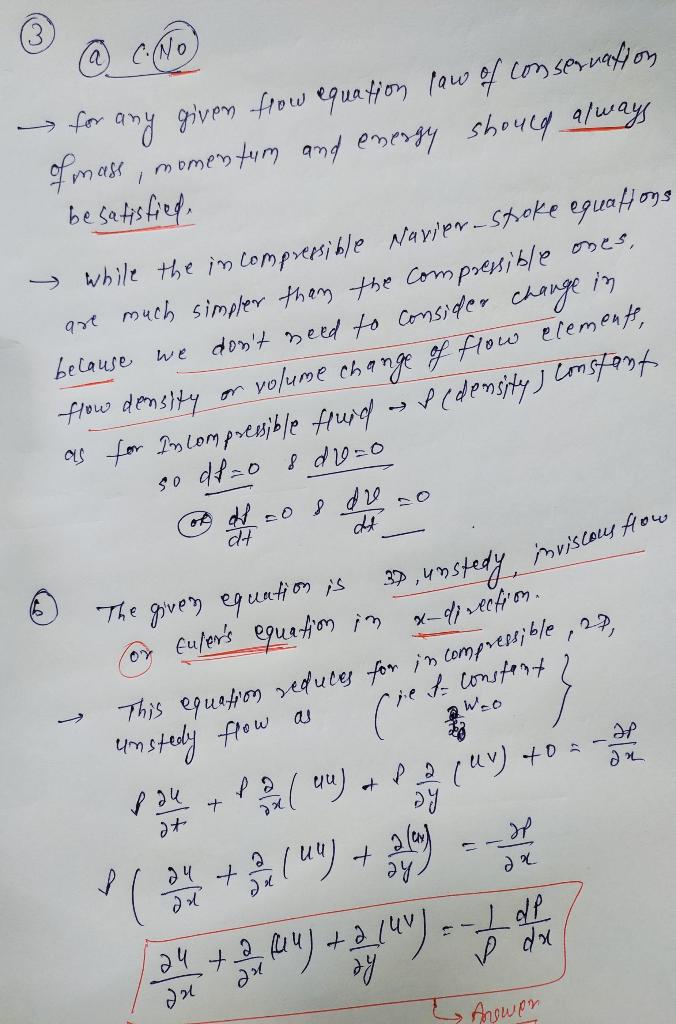 ③
ⓐ C. NO
→ for any given flow equation law of conservation
of mass, momentum and energy should always
be satisfied.
→ while the incompressible Navier-Stroke equations
are much simpler than the compressible ones,
because we don't need to consider change in
flow density or volume change of flow elements,
as for Incompressible fluid → ρ (density) constant
so dρ=0 & dv=0
or dρ/dt =0 & dv/dt =0
ⓑ The given equation is 3D, unstedy, inviscous flow
or Euler's equation in x-direction.
→ This equation reduces for incompressible, 2D,
unstedy flow as (i.e ρ= constant
w=0)
ρ ∂u/∂t + ρ ∂/∂x (uu) + ρ ∂/∂y (uv) + 0 = -∂P/∂x
ρ ( ∂u/∂x + ∂/∂x (uu) + ∂(uv)/∂y ) = -∂P/∂x
∂u/∂x + ∂/∂x (uu) + ∂/∂y (uv) = - 1/ρ dP/dx
↳ Answer